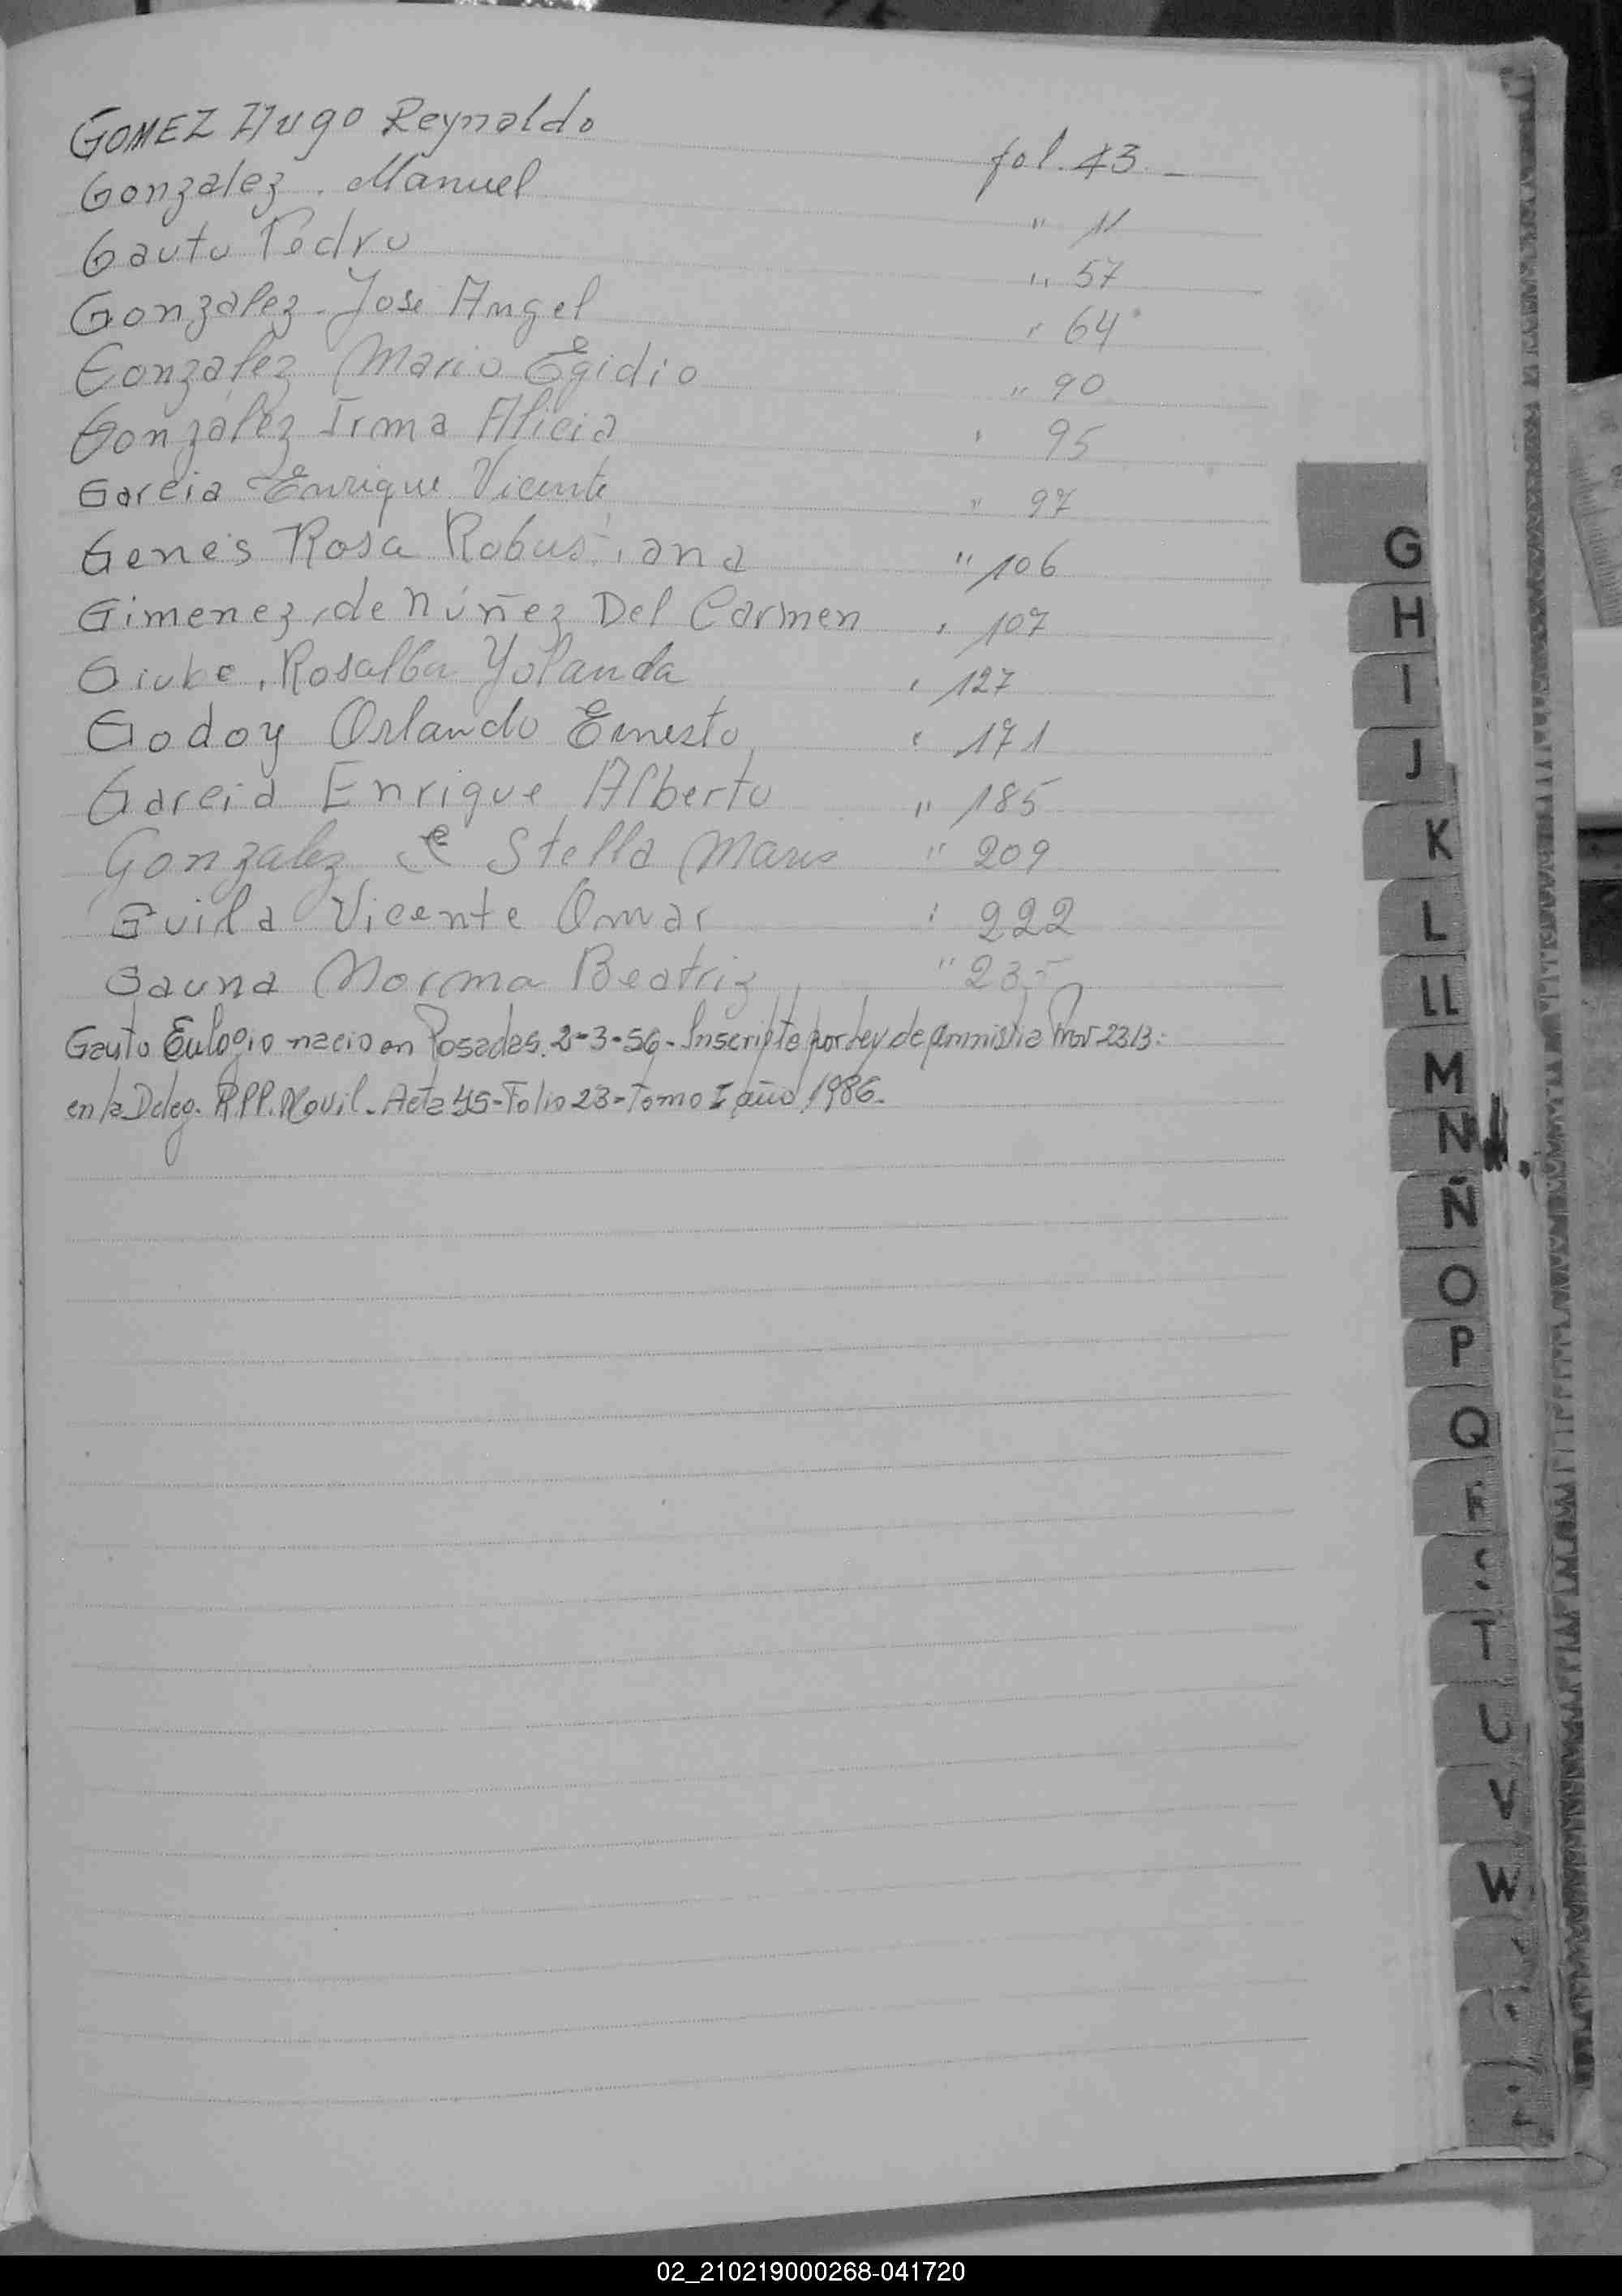 GOMEZ Hugo Reynaldo fol. 43. -
Gonzalez. Manuel " 11
Gauto Pedro " 57
Gonzalez - Jose Angel " 64
Gonzalez Mario Egidio " 90
González Irma Alicia " 95
Garcia Enrique Vicente " 97
Genes Rosa Robustiana " 106
Gimenez, de Núñez Del Carmen " 107
Rosalba Yolanda " 127
Godoy Orlando Ernesto " 171
Garcia Enrique Alberto " 185
Gonzalez Stella Maris " 209
Vicente Omar " 222
Gauna Norma Beatriz " 235
Gauto Eulogio nacio en Posadas. 2-3-56 - Inscripto por Ley de amnistia 2313.
en la Deleg. R.P.P. Movil. Acta 45 - Folio 23 - Tomo I año 1986.
G
H
I
J
K
L
LL
M
N
Ñ
O
P
Q
R
S
T
U
V
W
02_210219000268-041720